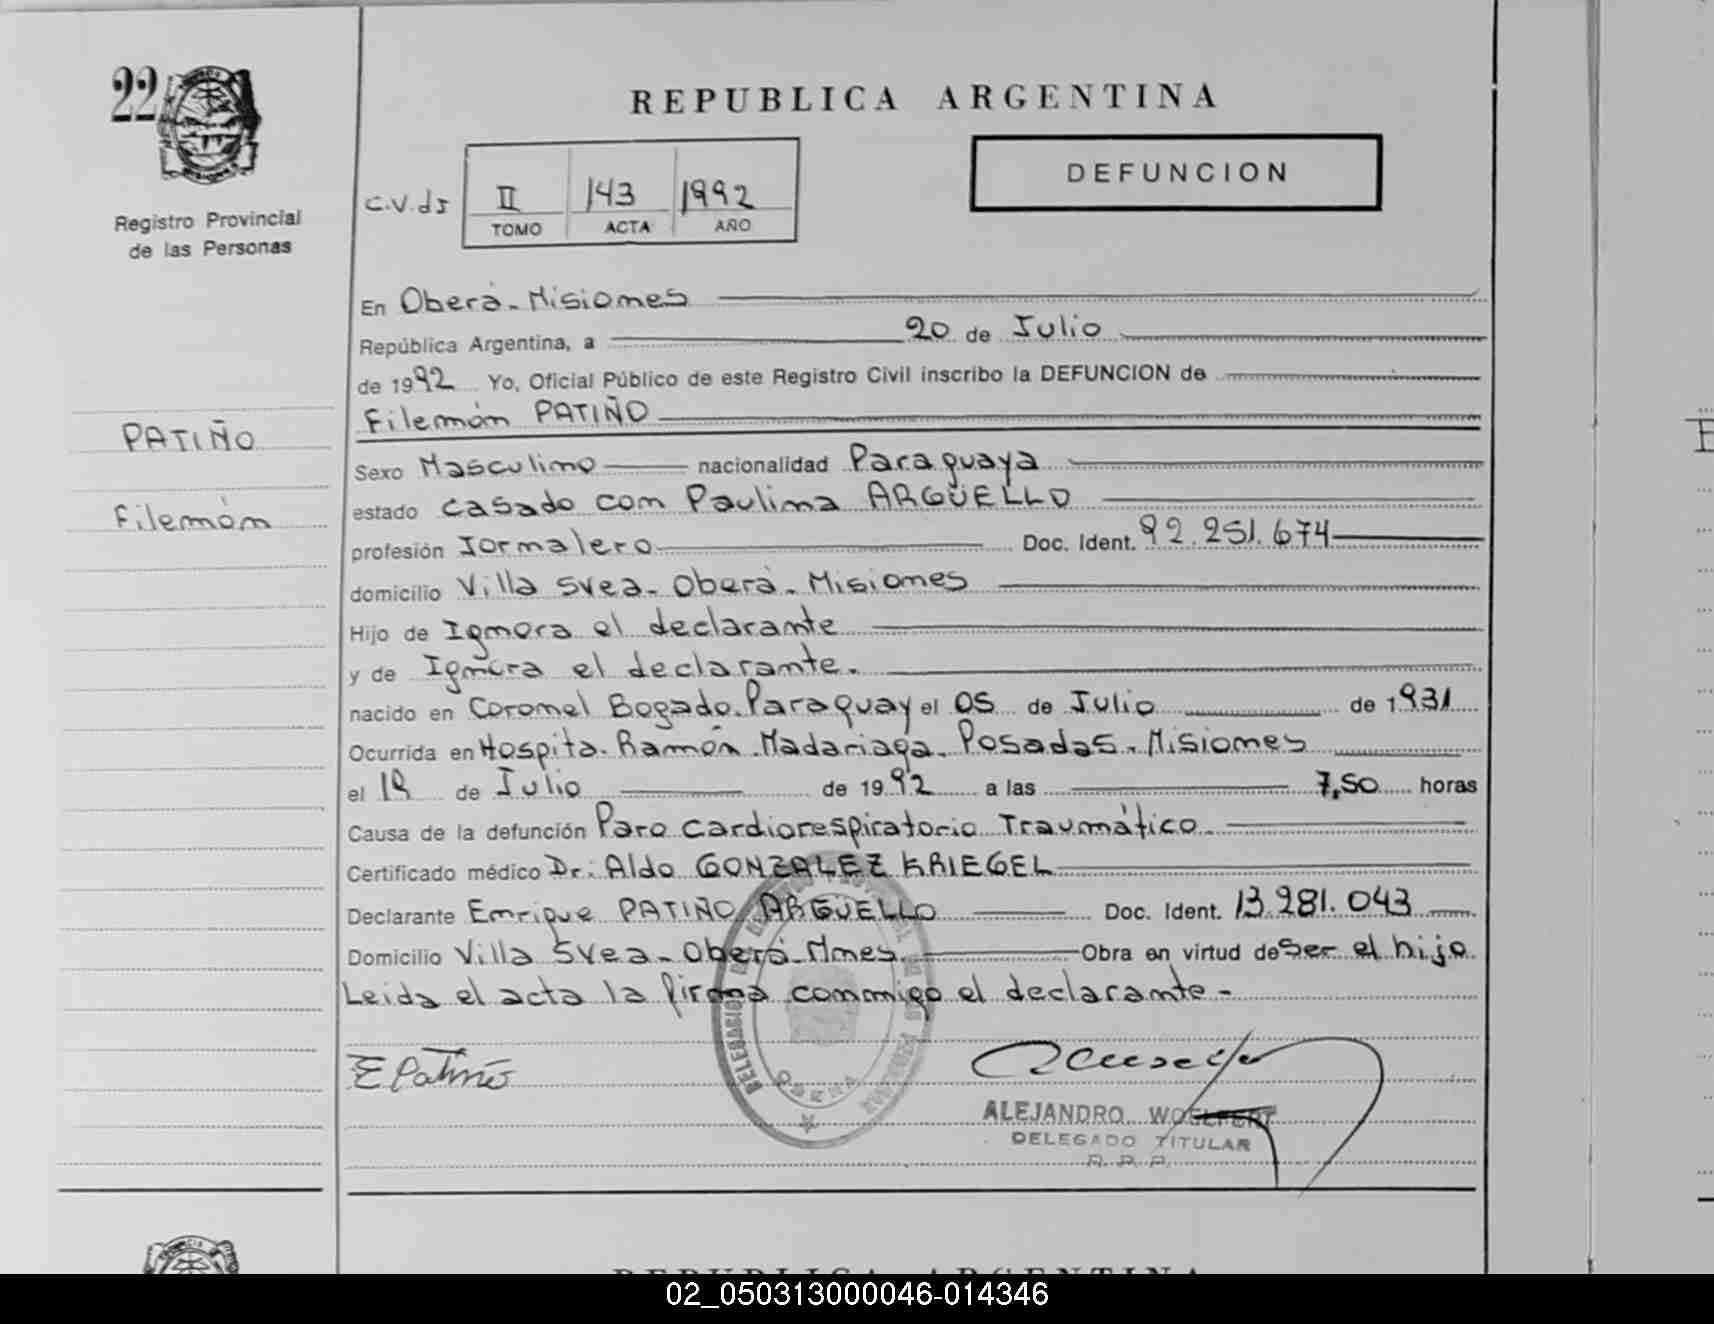 22
Registro Provincial
de las Personas
REPUBLICA ARGENTINA
DEFUNCION
C.V.ds II 143 1992
TOMO ACTA AÑO
En Oberá - Misiones
República Argentina, a 20 de Julio
de 1992 Yo, Oficial Público de este Registro Civil inscribo la DEFUNCION de
Filemón PATIÑO
PATIÑO
Filemón
Sexo Masculino nacionalidad Paraguaya
estado casado con Paulina ARGÜELLO
profesión Jornalero Doc. Ident. 92.251.674
domicilio Villa Svea - Oberá - Misiones
Hijo de Ignora el declarante
y de Ignora el declarante.
nacido en Coronel Bogado. Paraguay el 05 de Julio de 1931
Ocurrida en Hospita. Ramón Madariaga. Posadas. Misiones
el de Julio de 1992 a las 7,50 horas
Causa de la defunción Paro cardiorespiratorio Traumático.
Certificado médico Dr: Aldo GONZALEZ KRIEGEL
Declarante Enrique PATIÑO ARGÜELLO Doc. Ident. 13.281.043
Domicilio Villa Svea - Oberá - Mnes. Obra en virtud de Ser el hijo
Leida el acta la firma conmigo el declarante -
E Patiño
OBERA
ALEJANDRO WOELFERT
DELEGADO TITULAR
R. P. P.
REPUBLICA ARGENTINA
02_050313000046-014346